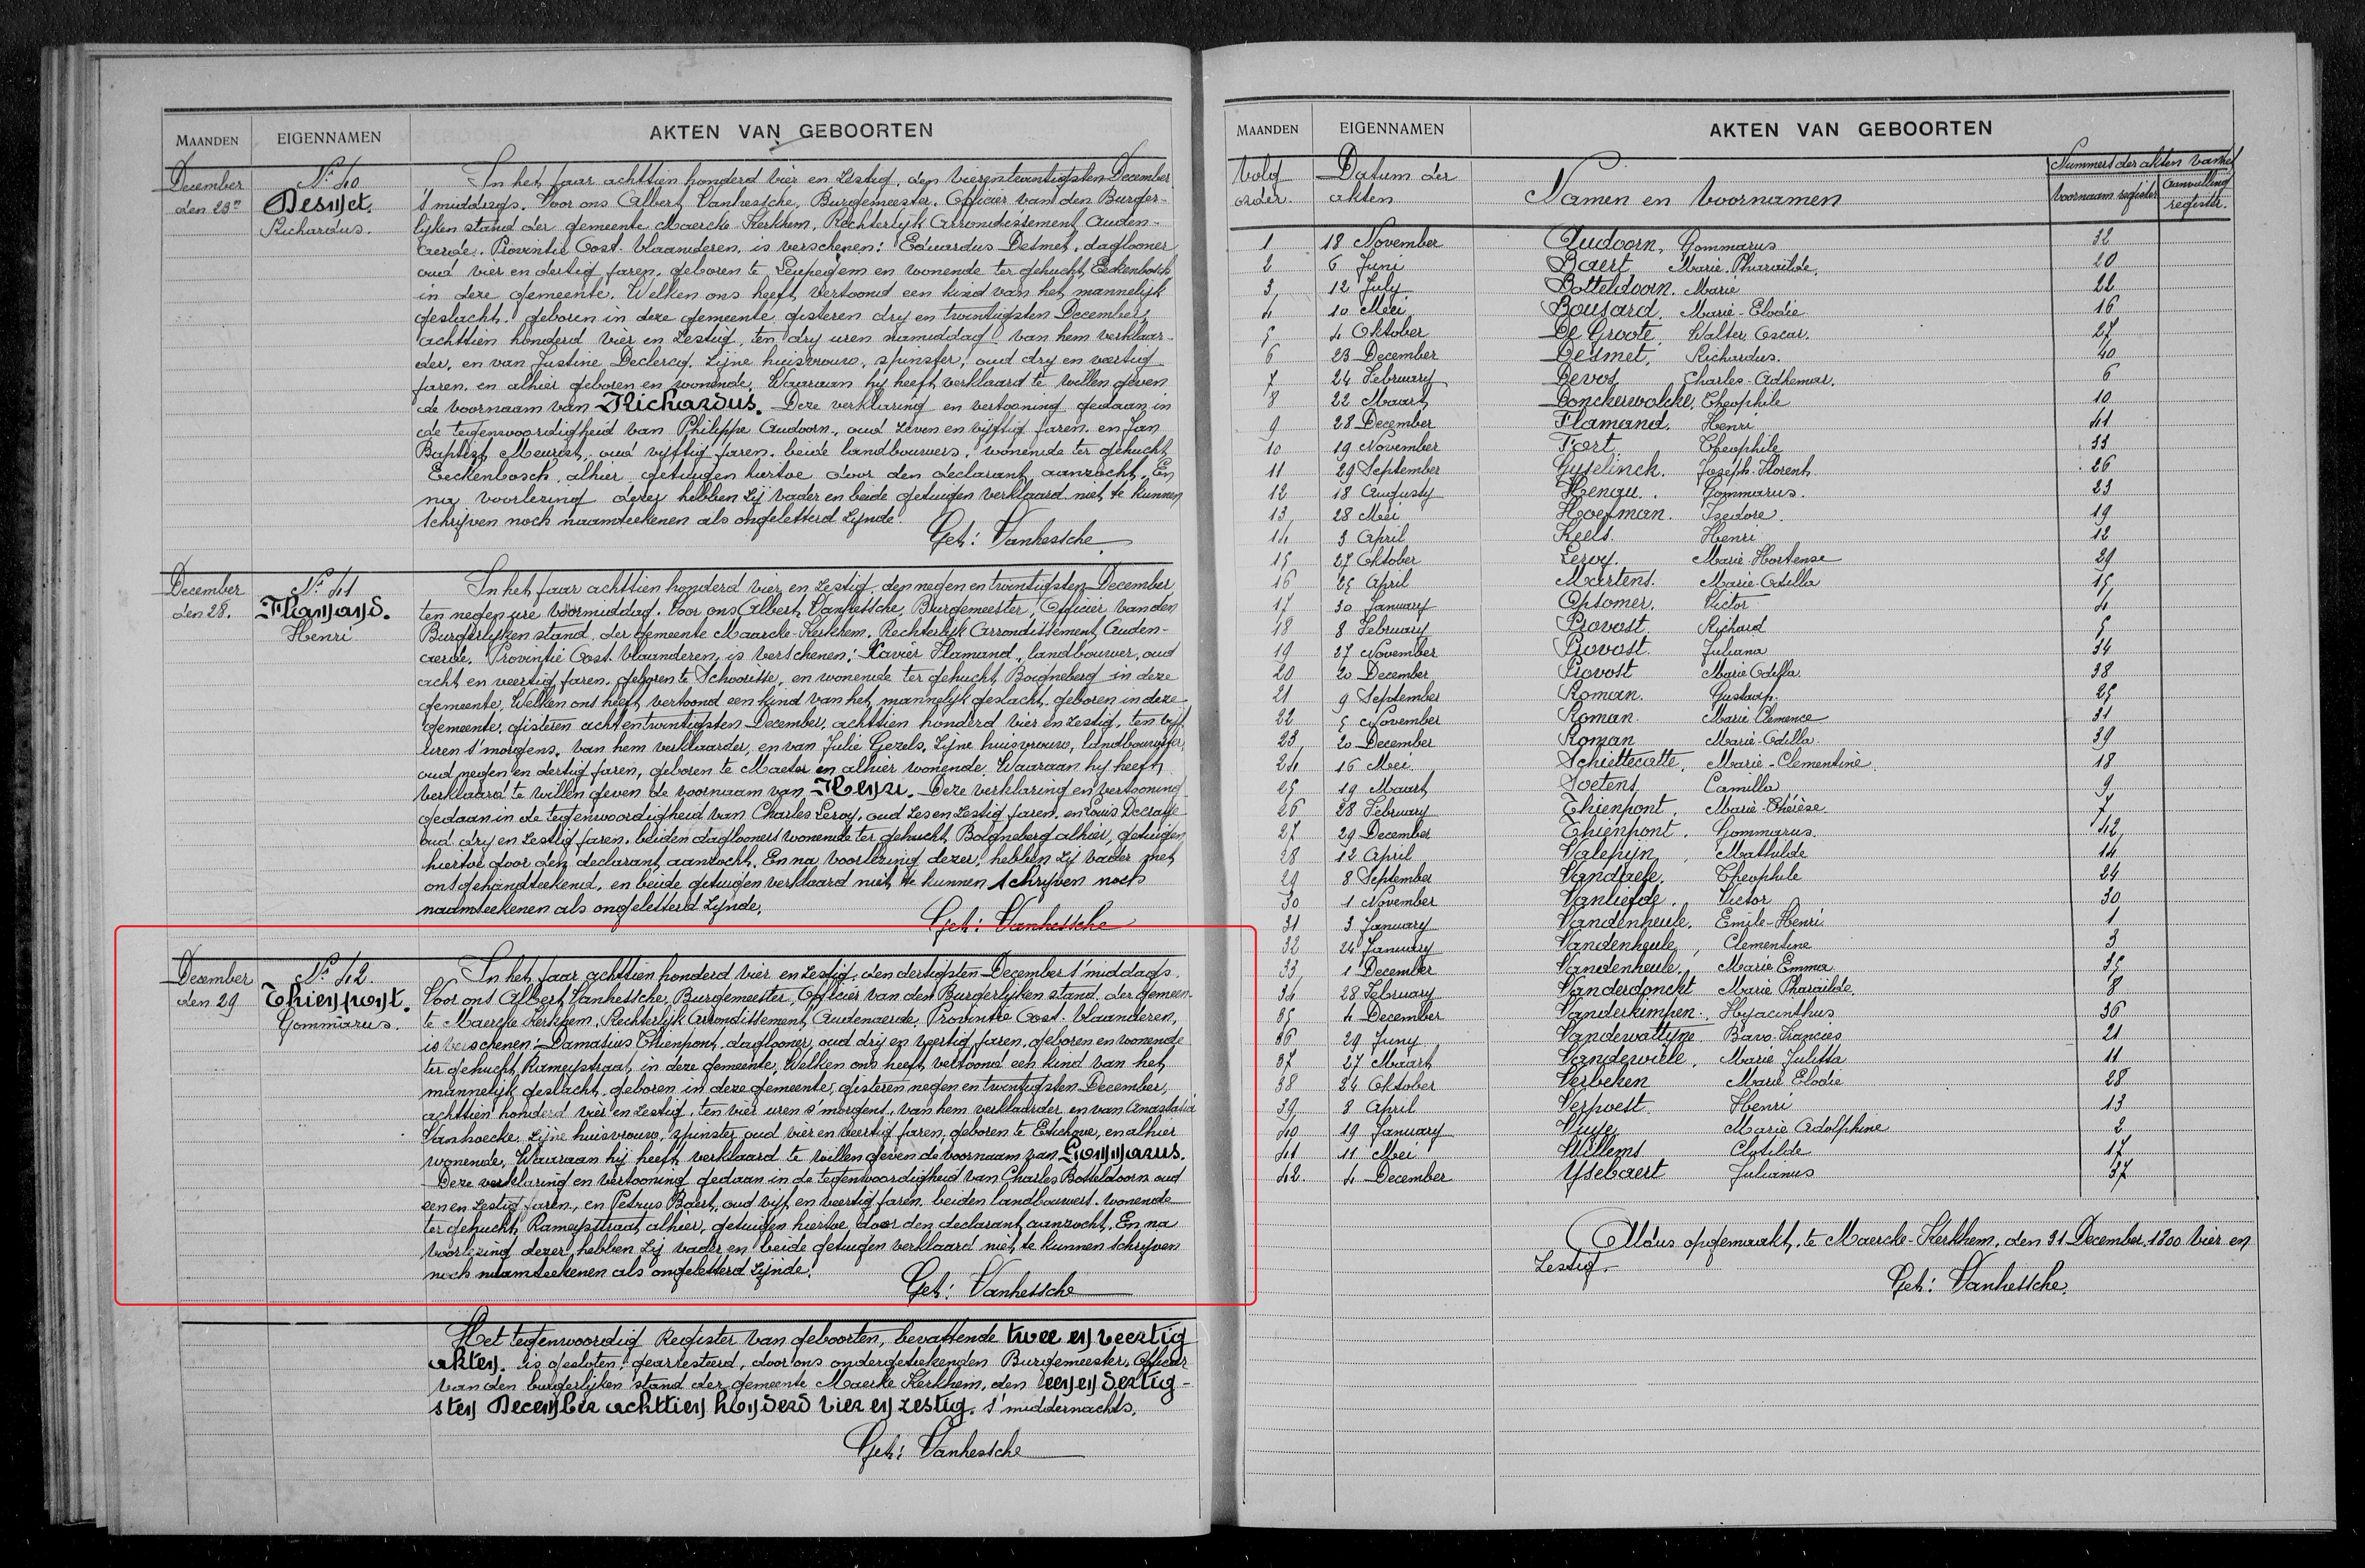 MAANDEN
EIGENNAMEN
AKTEN VAN GEBOORTEN
December
den 23en
No 40
Desmet.
Richardus.
In het jaar achttien honderd vier en zestig, den vierentwintigsten December
s'middags. Voor ons Albert Vanhessche, Burgemeester, Officier van den Burger-
lijken stand der gemeente Maercke-Kerkhem, Rechterlijk Arrondissement Auden-
aerde, Provintie Oost-Vlaanderen, is verschenen: Eduardus Desmet, daglooner
oud vier en dertig jaren, geboren te Leupegem en wonende ter gehucht Eeckenbosch
in deze gemeente. Welken ons heeft vertoond een kind van het mannelijk
geslacht, geboren in deze gemeente gisteren dry en twintigsten December,
achttien honderd vier en zestig, ten dry uren namiddag van hem verklaar-
der, en van Justine Declercq, zijne huisvrouw, spinster, oud dry en veertig
jaren, en alhier geboren en wonende. Waaraan hy heeft verklaard te willen geven
de voornaam van Richardus. Deze verklaring en vertooning gedaan in
de tegenwoordigheid van Philippe Audoorn, oud zeven en vijftig jaren, en Jan
Baptist Meurist, oud vijftig jaren, beide landbouwers, wonende ter gehucht
Eeckenbosch, alhier, getuigen hiertoe door den declarant aanzocht. En
na voorlezing dezer hebben zij vader en beide getuigen verklaard niet te kunnen
schrijven noch naamteekenen als ongeletterd zijnde.
Get: Vanhessche
December
den 28.
No 41
Flamand.
Henri
In het jaar achttien honderd vier en zestig, den negen en twintigsten December
ten negen ure voormiddag. Voor ons Albert Vanhessche, Burgemeester, Officier van den
Burgerlijken stand der gemeente Maarcke-Kerkhem, Rechterlijk Arrondissement Auden-
aerde, Provintie Oost-Vlaanderen, is verschenen: Xavier Flamand, landbouwer, oud
acht en veertig jaren, geboren te Schoorisse, en wonende ter gehucht Boigneberg in deze
gemeente. Welken ons heeft vertoond een kind van het mannelijk geslacht, geboren in deze
gemeente, gisteren achtentwintigsten December, achttien honderd vier en zestig, ten vijf
uren s'morgens, van hem verklaarder, en van Julie Gezels, zijne huisvrouw, landbouwster,
oud negen en dertig jaren, geboren te Maeter en alhier wonende. Waaraan hy heeft
verklaard te willen geven de voornaam van Henri. Deze verklaring en vertooning
gedaan in de tegenwoordigheid van Charles Leroy, oud zes en zestig jaren, en Louis Decraye
oud dry en zestig jaren, beiden daglooners wonende ter gehucht Boigneberg alhier, getuigen
hiertoe door den declarant aanzocht. En na voorlezing dezer, hebben zij vader met
ons gehandteekend, en beide getuigen verklaard niet te kunnen schrijven noch
naamteekenen als ongeletterd zijnde.
Get: Vanhessche
December
den 29
No 42.
Thienpont.
Gommarus.
In het jaar achttien honderd vier en zestig, den dertigsten December s'middags.
Voor ons Albert Vanhessche, Burgemeester, Officier van den Burgerlijken stand der gemeen-
te Maercke Kerkhem, Rechterlijk Arrondissement Audenaerde, Provintie Oost-Vlaanderen,
is verschenen: Damasius Thienpont, daglooner, oud drij en veertig jaren, geboren en wonende
ter gehucht Rameystraat, in deze gemeente. Welken ons heeft vertoond een kind van het
mannelijk geslacht, geboren in deze gemeente, gisteren negen en twintigsten December,
achttien honderd vier en zestig, ten vier uren s'morgens, van hem verklaarder en van Anastasia
Vanhoecke, zijne huisvrouw, spinster, oud vier en veertig jaren, geboren te Etichove, en alhier
wonende. Waaraan hij heeft verklaard te willen geven de voornaam van Gommarus.
Deze verklaring en vertooning gedaan in de tegenwoordigheid van Charles Botteldoorn oud
een en zestig jaren, en Petrus Baert, oud vijf en veertig jaren, beiden landbouwers, wonende
ter gehucht Rameystraat alhier, getuigen hiertoe door den declarant aanzocht. En na
voorlezing dezer, hebben zij vader en beide getuigen verklaard niet te kunnen schrijven
noch naamteekenen als ongeletterd zijnde.
Get: Vanhessche
Het tegenwoordig Register van geboorten, bevattende twee en veertig
akten, is gesloten, gearresteerd, door ons ondergeteekenden Burgemeester, Officier
van den burgerlijken stand der gemeente Maerke Kerkhem, den een en dertig-
sten December achttien honderd vier en zestig, s'middernachts.
Get: Vanhessche
MAANDEN
EIGENNAMEN
AKTEN VAN GEBOORTEN
Volg order.
Datum der akten
Namen en Voornamen
Nummers der akten van het
voornaam register
aanvulling register.
1 18 November Audoorn, Gommarus 32
2 6 Juni Baert Marie Pharailde. 20
3 12 July Botteldoorn. Marie 22
4 10 Mei Bousard. Marie-Elodie 16
5 4 Oktober De Groote, Walter Oscar. 27
6 23 December Desmet, Richardus. 40
7 24 February Devos, Charles-Adhemar. 6
8 22 Maart Donckerwolcke, Theophile 10
9 28 December Flamand. Henri 41
10 19 November Fort Theophile 33
11 29 September Gyselinck. Joseph-Florent. 26
12 18 Augusty Henau. Gommarus. 23
13 28 Mei Hoefman. Isedore. 19
14 3 April Keels. Henri 12
15 27 Oktober Leroy. Marie-Hortense 29
16 25 April Martens. Marie-Odilla 15
17 30 January Opsomer. Victor 4
18 8 February Provost. Richard 5
19 27 November Provost. Juliana 34
20 20 December Provost Marie Odilla. 38
21 9 September Roman. Gustaaf. 25
22 5 November Roman. Marie Clemence 31
23 20 December Roman Marie-Odilla. 39
24 16 Mei Schiettecatte. Marie-Clementine. 18
25 19 Maart Soetens Camilla 9
26 28 February Thienpont. Marie-Thérèse. 7
27 29 December Thienpont. Gommarus. 42
28 12 April Valepijn, Mathilde 14
29 8 September Vandaele. Theophile 24
30 1 November Vanliefde. Victor 30
31 3 January Vandenheule. Emile-Henri 1
32 24 January Vandenheule, Clementine 3
33 1 December Vandenheule. Marie Emma 35
34 28 February Vanderdonckt Marie Pharailde. 8
35 4 December Vanderkimpen. Hyacinthus 36
36 29 Juny Vandewattyne Bavo-Francies 21
37 27 Maart Vandewiele, Marie Julitta 11
38 24 Oktober Verbeken Marie Elodie 28
39 8 April Verpoest. Henri 13
40 19 January Vuye Marie Adolphine 2
41 11 Mei Willems Clotilde 17
42. 4 December Ysebaert Julianus 37
Aldus opgemaakt, te Maercke-Kerkhem, den 31 December 1800 vier en
zestig.
Get: Vanhessche.